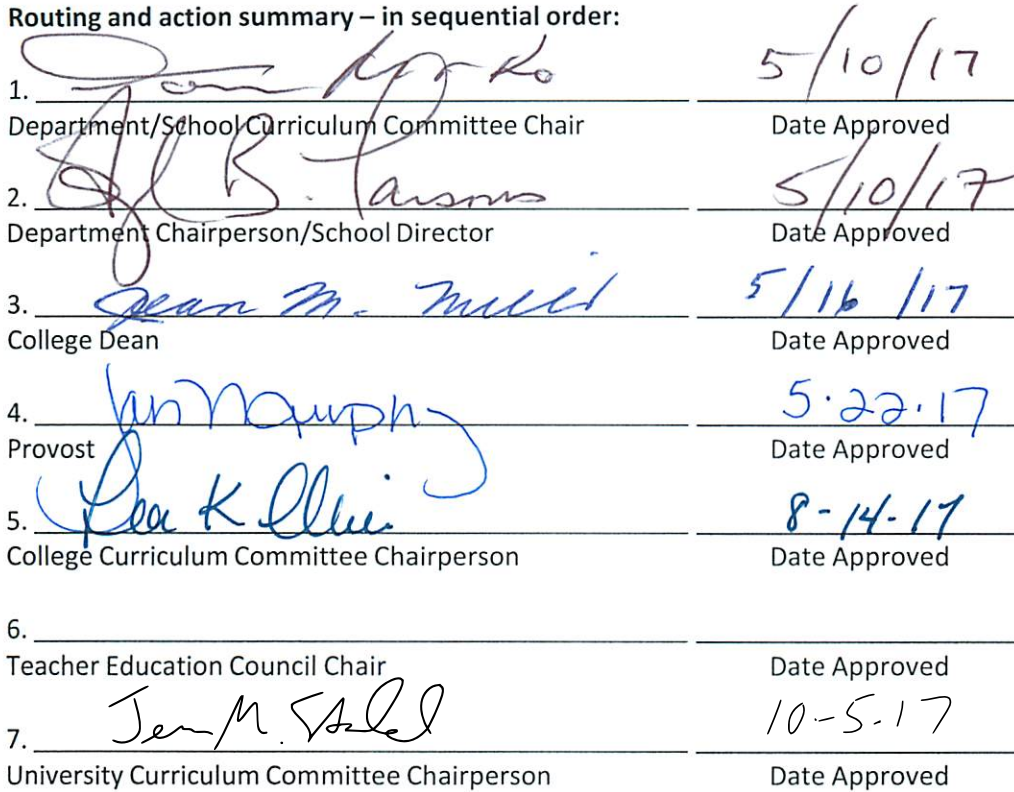 Routing and action summary – in sequential order:
1. 5/10/17
Department/School Curriculum Committee Chair Date Approved
2. B. Parsons 5/10/17
Department Chairperson/School Director Date Approved
3. Jean M. Miller 5/16/17
College Dean Date Approved
4. Jan Murphy 5.22.17
Provost Date Approved
5. K 8-14-17
College Curriculum Committee Chairperson Date Approved
6.
Teacher Education Council Chair Date Approved
7. M. 10-5-17
University Curriculum Committee Chairperson Date Approved